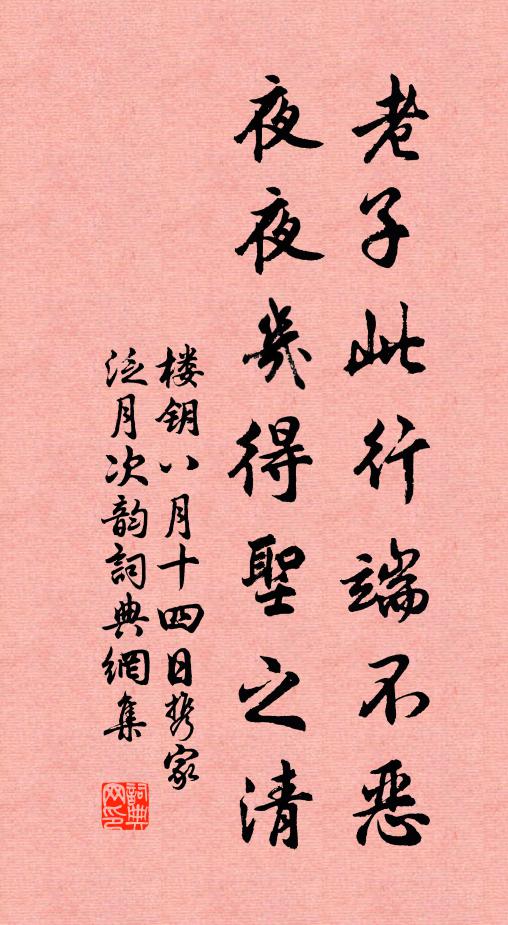 老子此行端不恶
夜夜几得聖之清
楼钥八月十四日携家
泛月次韵詞典網集
詞典
网印